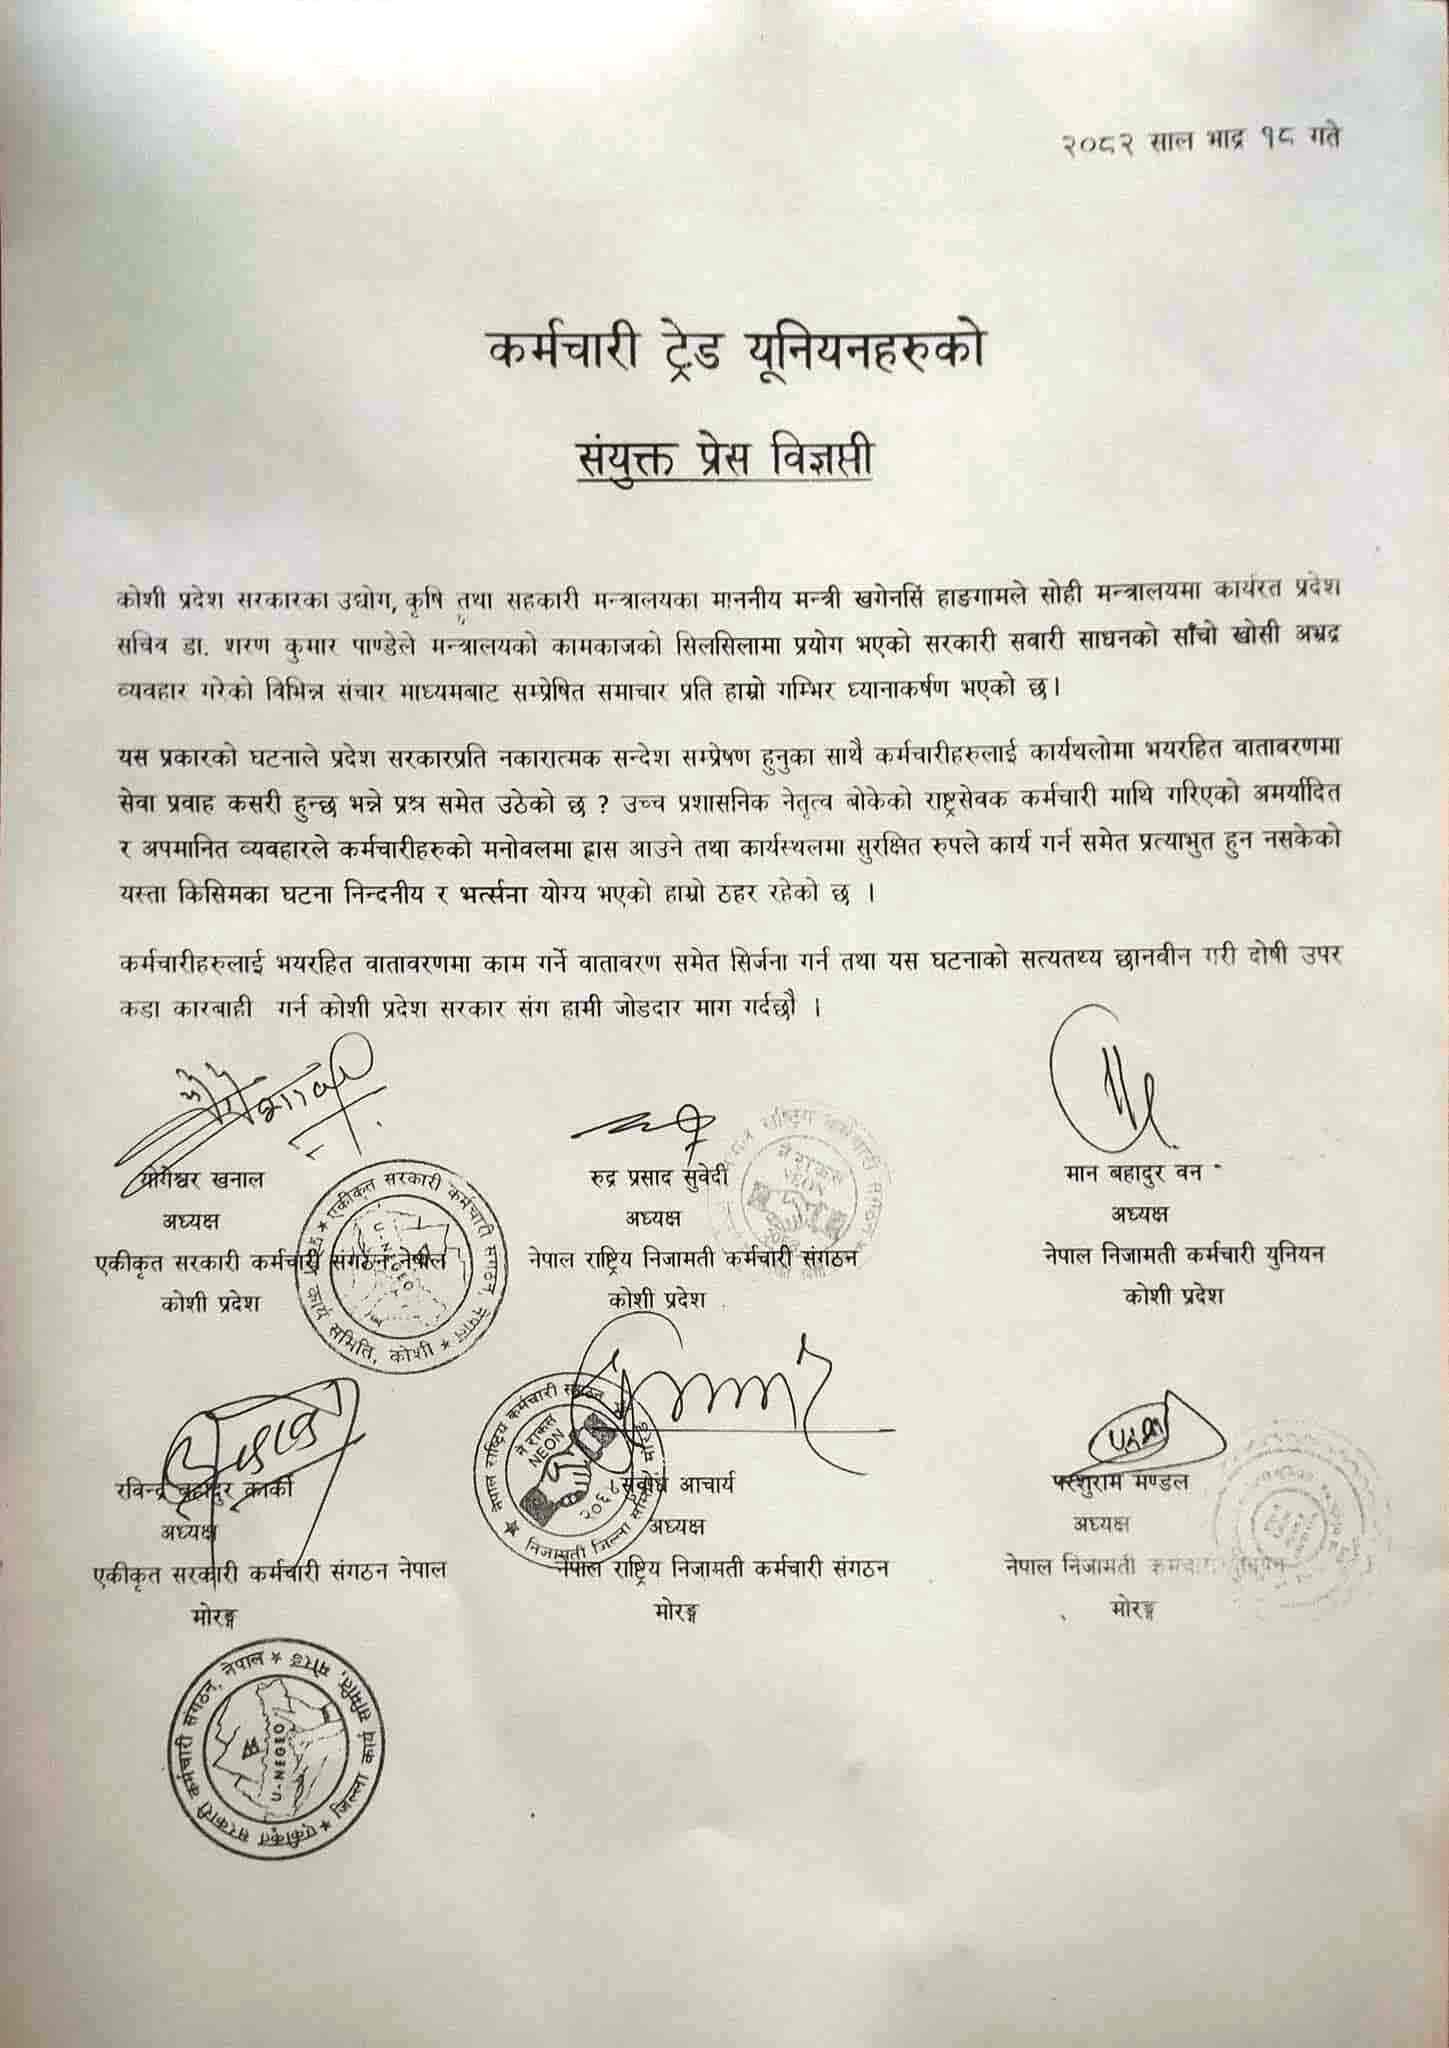 २०८२ साल भाद्र १८ गते
कर्मचारी ट्रेड यूनियनहरुको
संयुक्त प्रेस विज्ञप्ती
कोशी प्रदेश सरकारका उद्योग, कृषि तथा सहकारी मन्त्रालयका माननीय मन्त्री खगेनसिं हाङगामले सोही मन्त्रालयमा कार्यरत प्रदेश
सचिव डा. शरण कुमार पाण्डेले मन्त्रालयको कामकाजको सिलसिलामा प्रयोग भएको सरकारी सवारी साधनको साँचो खोसी अभ्रद्र
व्यवहार गरेको विभिन्न संचार माध्यमबाट सम्प्रेषित समाचार प्रति हाम्रो गम्भिर ध्यानाकर्षण भएको छ।
यस प्रकारको घटनाले प्रदेश सरकारप्रति नकारात्मक सन्देश सम्प्रेषण हुनुका साथै कर्मचारीहरुलाई कार्यथलोमा भयरहित वातावरणमा
सेवा प्रवाह कसरी हुन्छ भन्ने प्रश्न समेत उठेको छ ? उच्च प्रशासनिक नेतृत्व बोकेको राष्ट्रसेवक कर्मचारी माथि गरिएको अमर्यादित
र अपमानित व्यवहारले कर्मचारीहरुको मनोवलमा ह्रास आउने तथा कार्यस्थलमा सुरक्षित रुपले कार्य गर्न समेत प्रत्याभुत हुन नसकेको
यस्ता किसिमका घटना निन्दनीय र भर्त्सना योग्य भएको हाम्रो ठहर रहेको छ ।
कर्मचारीहरुलाई भयरहित वातावरणमा काम गर्ने वातावरण समेत सिर्जना गर्न तथा यस घटनाको सत्यतथ्य छानवीन गरी दोषी उपर
कडा कारबाही गर्न कोशी प्रदेश सरकार संग हामी जोडदार माग गर्दछौ ।
योगेश्वर खनाल
अध्यक्ष
एकीकृत सरकारी कर्मचारी संगठन नेपाल
कोशी प्रदेश
एकीकृत सरकारी कर्मचारी संगठन, नेपाल
कार्य समिति, कोशी
रुद्र प्रसाद सुवेदी
अध्यक्ष
नेपाल राष्ट्रिय निजामती कर्मचारी संगठन
कोशी प्रदेश
मान बहादुर वन
अध्यक्ष
नेपाल निजामती कर्मचारी युनियन
कोशी प्रदेश
रविन्द्र बहादुर कार्की
अध्यक्ष
एकीकृत सरकारी कर्मचारी संगठन नेपाल
मोरङ्ग
एकीकृत सरकारी कर्मचारी संगठन, नेपाल
जिल्ला कार्य समिति, मोरङ
U-NEGEO
नेपाल राष्ट्रिय कर्मचारी संगठन
NEON
सुवोध आचार्य
अध्यक्ष
नेपाल राष्ट्रिय निजामती कर्मचारी संगठन
मोरङ्ग
परशुराम मण्डल
अध्यक्ष
नेपाल निजामती कर्मचारी युनियन
मोरङ्ग